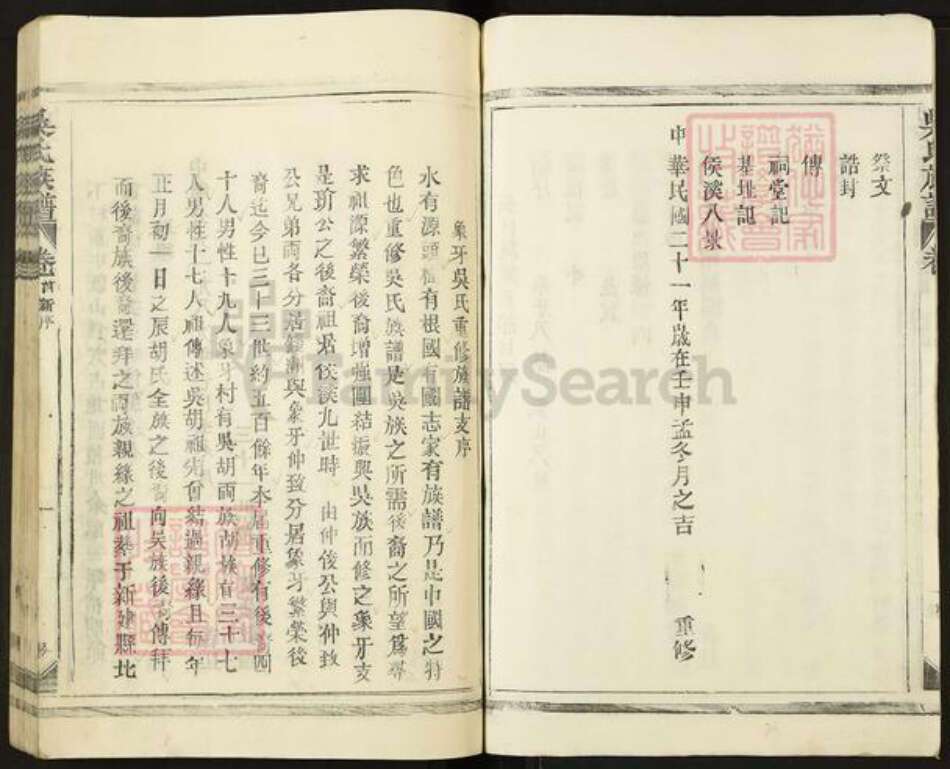 吳氏族譜 卷
祭文
誥封
傳
祠堂記
基址記
侯溪八景
中華民國二十一年歲在壬申孟冬月之吉
重修
象牙吳氏重修族譜支序
水有源頭樹有根國有國志家有族譜乃是中國之特
色也重修吳氏族譜是吳族之所需後裔之所望爲尋
求祖源繁榮後裔增強團結振興吳族而修之象牙支
是玠公之後裔祖居侯溪九世時 由仲俊公與仲致
公兄弟兩各分居錦湖與象牙仲致分居象牙繁榮後
裔迄今已三十三世約五百餘年本屆重修有後裔四
十人男性十九人象牙村有吳胡兩族胡族有三十七
人男性十七人祖傳述吳胡祖先曾結過親緣且每年
正月初一日之辰胡氏全族之後裔向吳族後裔傳拜
而後裔族後裔還拜之兩族親緣之祖塋于新建縣北
吳氏族譜 卷首 新序
一
FamilySearch